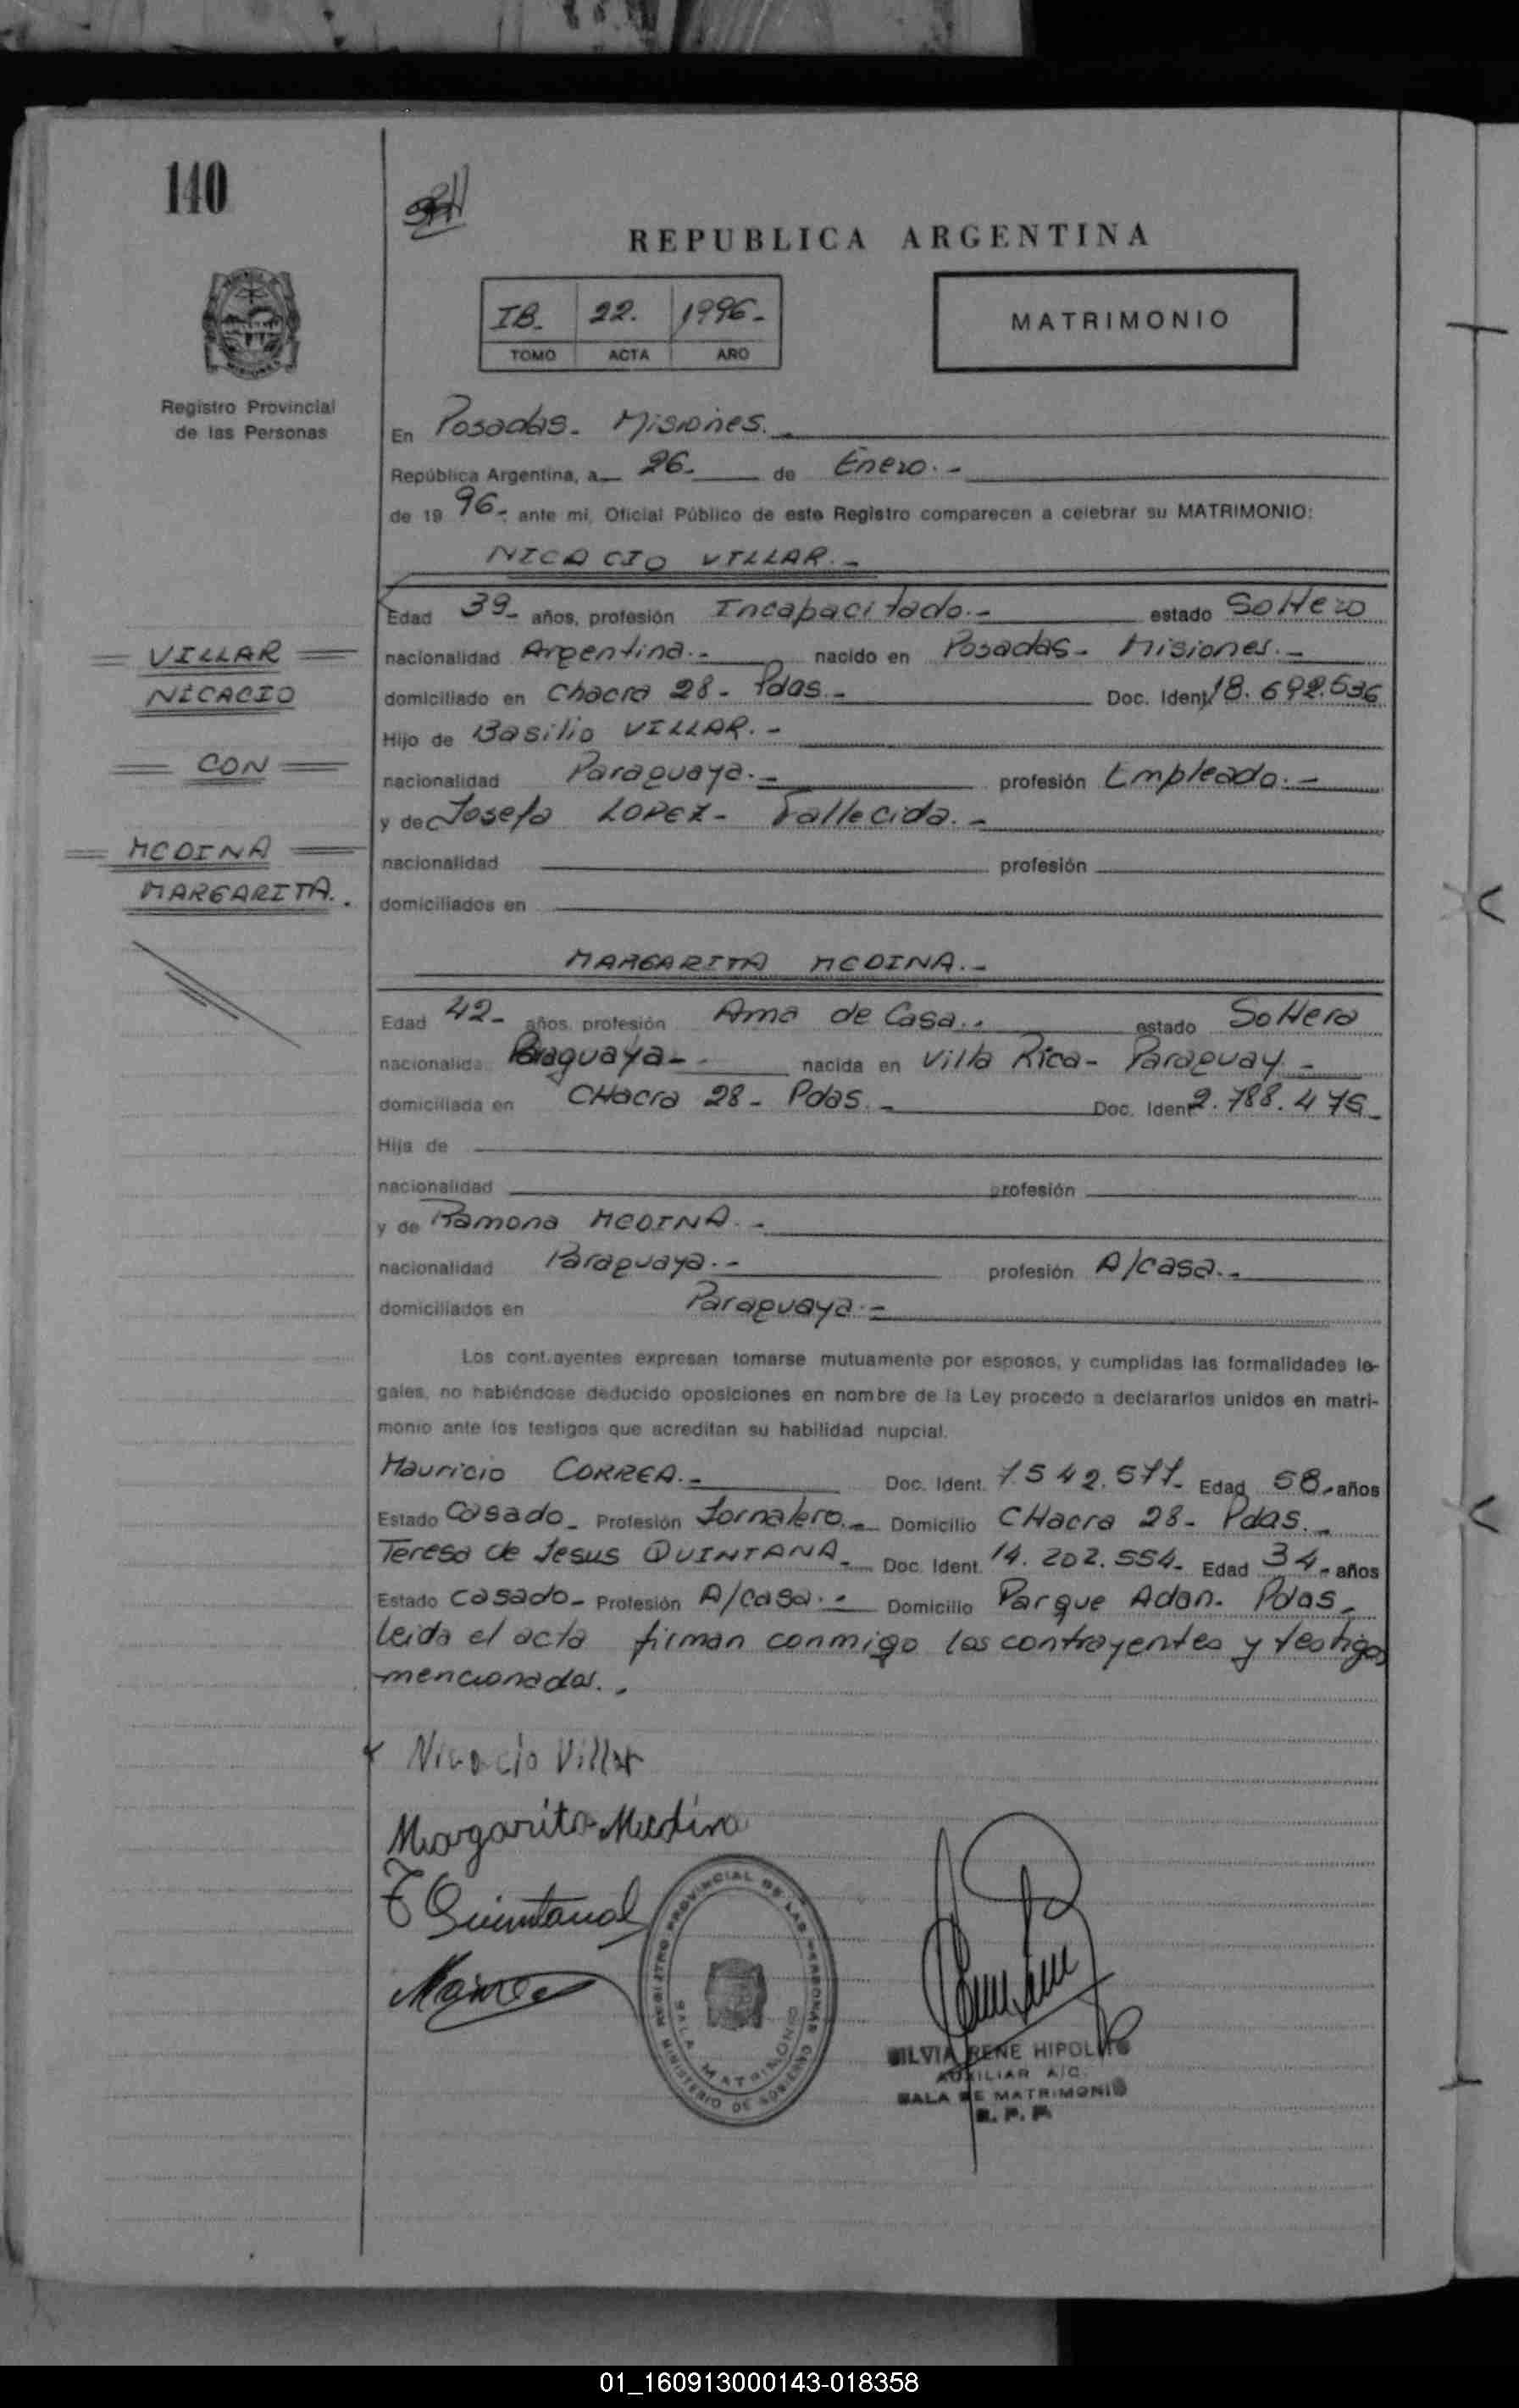 140
REPUBLICA ARGENTINA
IB. 22. 1996.-
TOMO ACTA AÑO
MATRIMONIO
Registro Provincial
de las Personas
En Posadas- Misiones.-
República Argentina, a 26.- de Enero.-
de 19 96.- ante mi, Oficial Público de este Registro comparecen a celebrar su MATRIMONIO:
NICACIO VILLAR.-
Edad 39- años, profesión Incapacitado.- estado Soltero
nacionalidad Argentina.- nacido en Posadas- Misiones.-
domiciliado en Chacra 28- Pdas.- Doc. Ident. 18.692.636
Hijo de Basilio VILLAR.-
nacionalidad Paraguaya.- profesión Empleado.-
y de Josefa LOPEZ- Fallecida.-
nacionalidad profesión
domiciliados en
VILLAR
NICACIO
CON
MEDINA
MARGARITA..
MARGARITA MEDINA.-
Edad 42- años, profesión Ama de Casa.. estado Soltera
nacionalida Paraguaya-. nacida en Villa Rica- Paraguay.-
domiciliada en CHacra 28- Pdas.- Doc. Ident 2.788.475-
Hija de
nacionalidad profesión
y de Ramona MEDINA.-
nacionalidad Paraguaya.- profesión A/casa.-
domiciliados en Paraguaya.-
Los contrayentes expresan tomarse mutuamente por esposos, y cumplidas las formalidades le-
gales, no habiéndose deducido oposiciones en nombre de la Ley procedo a declararlos unidos en matri-
monio ante los testigos que acreditan su habilidad nupcial.
Mauricio CORREA.- Doc. Ident. 7.542.577- Edad 58.-años
Estado Casado- Profesión Jornalero.- Domicilio CHacra 28- Pdas.-
Teresa de Jesus QUINTANA- Doc. Ident. 14.202.554- Edad 34.-años
Estado casado- Profesión A/casa.- Domicilio Parque Adan- Pdas-
Leida el acta firman conmigo los contrayentes y testigos
mencionados..
Nicacio Villar
Margarita Medina
T Quintana
REGISTRO PROVINCIAL DE LAS PERSONAS
SALA MATRIMONIO
MINISTERIO DE GOBIERNO
SILVIA RENE HIPOLITO
AUXILIAR A/C
SALA DE MATRIMONIO
R. P. P.
01_160913000143-018358